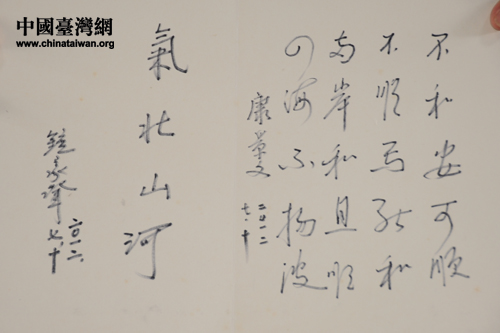 中國臺灣網
www.chinataiwan.org
不和安可順
不順焉能和
兩岸和且順
四海不揚波
康
二〇一二
七、十
氣壯山河
二〇一二、
七、十